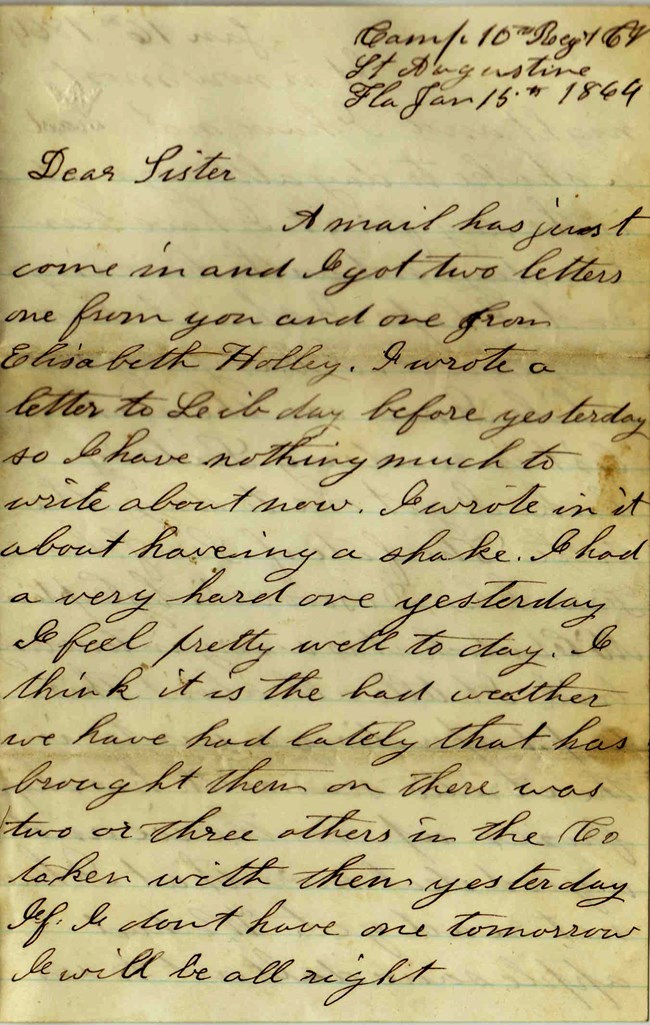 Camp 10th Regt CV
St Augustine
Fla Jan 15th 1864
Dear Sister
A mail has just
come in and I got two letters
one from you and one from
Elisabeth Holley. I wrote a
letter to Leib day before yesterday
so I have nothing much to
write about now. I wrote in it
about haveing a shake. I had
a very hard one yesterday
I feel pretty well to day. I
think it is the bad weather
we have had lately that has
brought them on there was
two or three others in the Co
taken with them yesterday
If I dont have one tomorrow
I will be all right